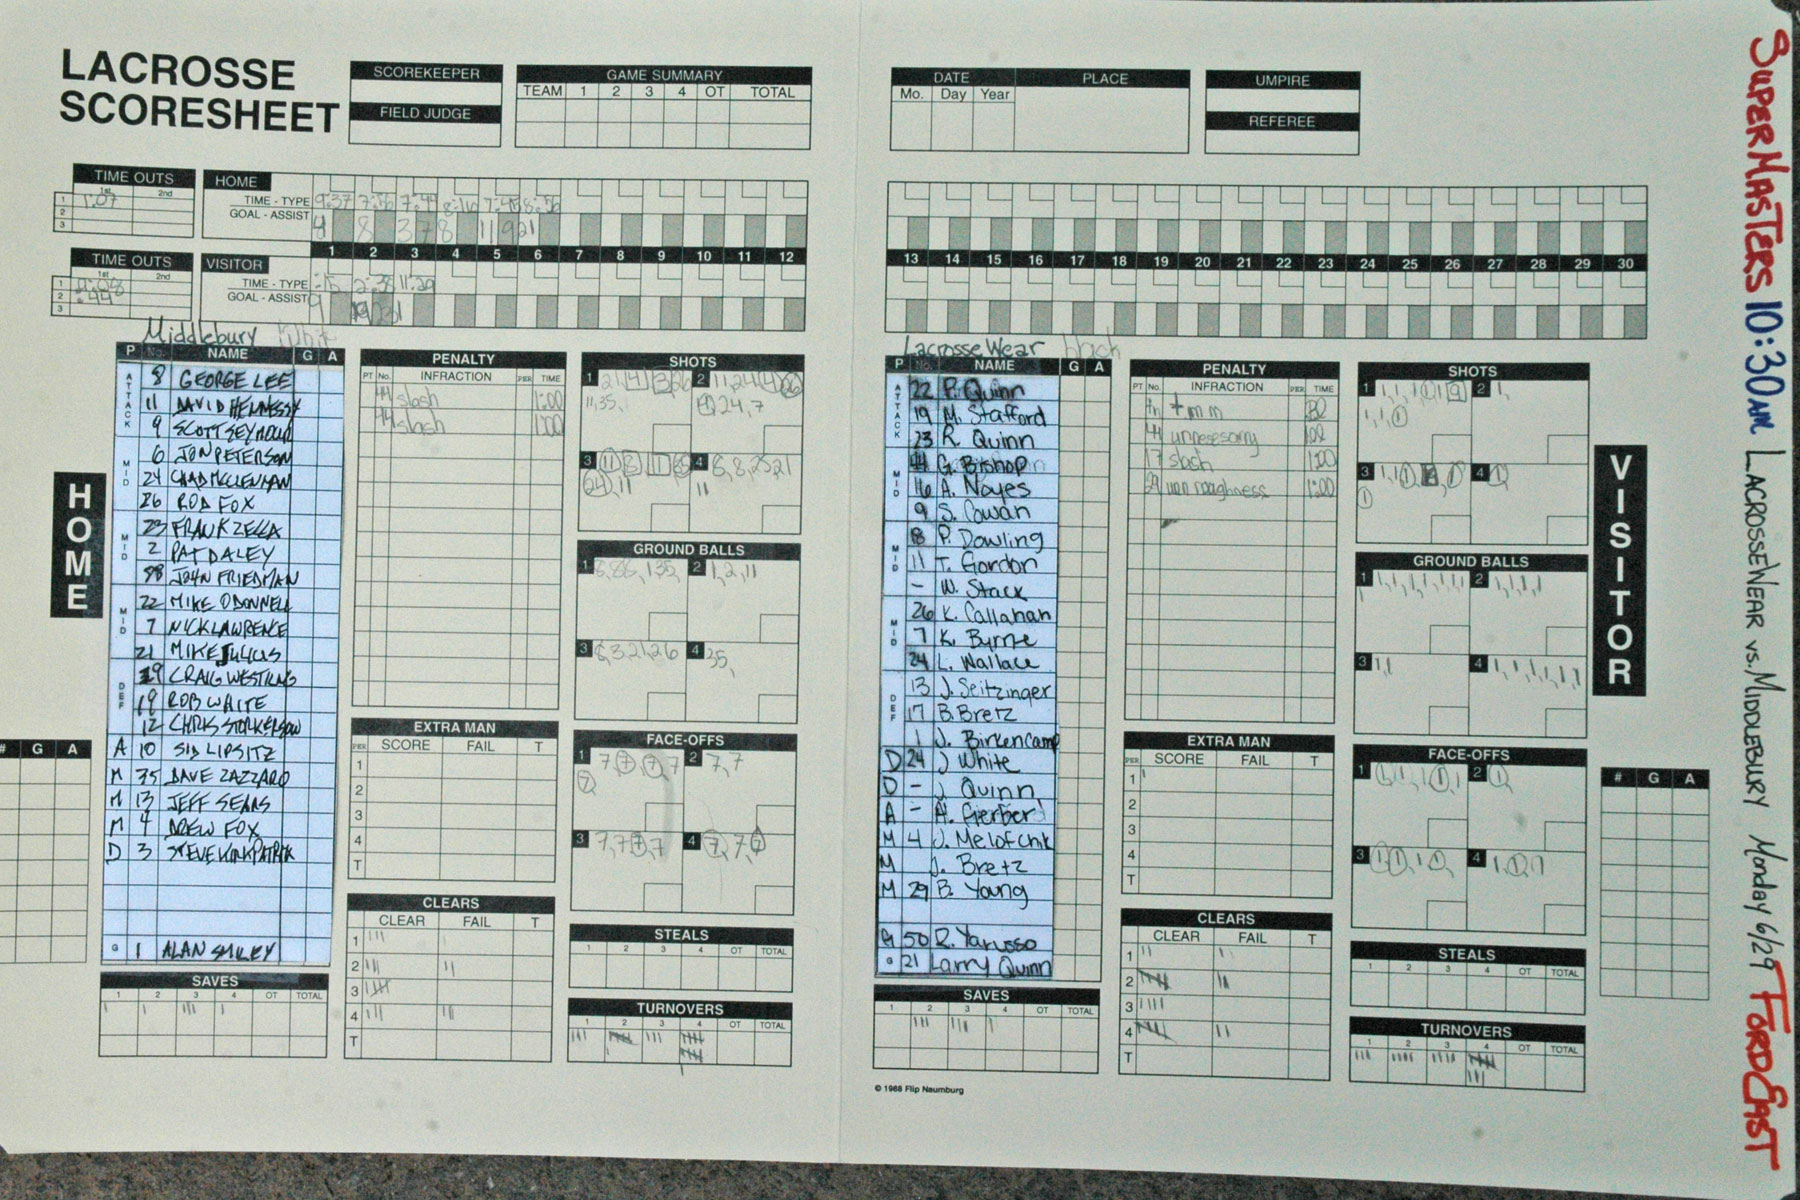 LACROSSE
SCORESHEET
SCOREKEEPER
FIELD JUDGE
GAME SUMMARY
TEAM 1 2 3 4 OT TOTAL
DATE PLACE
Mo. Day Year
UMPIRE
REFEREE
TIME OUTS
1st 2nd
1 1:07
2
3
HOME
TIME - TYPE 9:37 7:44 7:45 8:56
GOAL - ASSIST 4 8 3 7 8 11 9 21
1 2 3 4 5 6 7 8 9 10 11 12
13 14 15 16 17 18 19 20 21 22 23 24 25 26 27 28 29 30
TIME OUTS
1st 2nd
1
2 :44
3
VISITOR
TIME - TYPE :15 2:38 11:29
GOAL - ASSIST 9 19
HOME
Middlebury
P No. NAME G A
ATTACK
8 GEORGE LEE
11 DAVID HENNESSY
9 SCOTT SEYMOUR
MID
6 JON PETERSON
24 CHAD MCCLENNAN
26 ROD FOX
MID
23 FRANK ZELLA
2 PAT DALEY
88 JOHN FRIEDMAN
MID
22 MIKE O'DONNELL
7 NICK LAWRENCE
21 MIKE JULIUS
DEF
CRAIG WESTLING
19 ROB WHITE
12 CHRIS STORKERSON
A 10 SID LIPSITZ
M 35 DAVE ZAZZARO
M 13 JEFF SEARS
M 4 DREW FOX
D 3 STEVE KIRKPATRIK
G 1 ALAN SMILEY
PENALTY
PT No. INFRACTION PER TIME
44 slash 1:00
44 slash 1:00
SHOTS
1 2
11,35,
24,7
3 4 6,8,25,21
11
GROUND BALLS
1 2 1,2,11
3 4 35,
EXTRA MAN
PER SCORE FAIL T
1
2
3
4
T
FACE-OFFS
1 7,7,7,7 2 7,7
7
3 7,7,7,7 4 7,7,7
CLEARS
CLEAR FAIL T
1 III
2 III II
3
4 III III
T
STEALS
1 2 3 4 OT TOTAL
SAVES
1 2 3 4 OT TOTAL
I I III I
TURNOVERS
1 2 3 4 OT TOTAL
# G A
VISITOR
LacrosseWear black
P No. NAME G A
ATTACK
22 P. Quinn
19 M. Stafford
23 R. Quinn
MID
44 G. Bishop
16 A. Noyes
9 S. Cowan
MID
18 P. Dowling
11 T. Gordon
- W. Stack
MID
26 K. Callahan
7 K. Byrne
24 L. Wallace
DEF
13 J. Seitzinger
17 B. Bretz
1 J. Birkencamp
D 24 J White
D - J Quinn
A - A. Gerber
M 4 J. Melofchik
M J. Bretz
M 29 B. Young
G 50 R. Yarusso
G 21 Larry Quinn
PENALTY
PT No. INFRACTION PER TIME
tmm 30
44 unnesesorry
17 slash 1:00
29 unn roughness 1:00
SHOTS
1 2
3 4
GROUND BALLS
1 2
3 4
EXTRA MAN
PER SCORE FAIL T
1 I
2
3
4
T
FACE-OFFS
1 2
3 4
CLEARS
CLEAR FAIL T
1 II
2
3 IIII
4 II
T
STEALS
1 2 3 4 OT TOTAL
SAVES
1 2 3 4 OT TOTAL
III III I
TURNOVERS
1 2 3 4 OT TOTAL
III IIII IIII
# G A
© 1988 Flip Naumburg
SUPERMASTERS 10:30AM LACROSSEWEAR VS. MIDDLEBURY Monday 6/29 FORD EAST